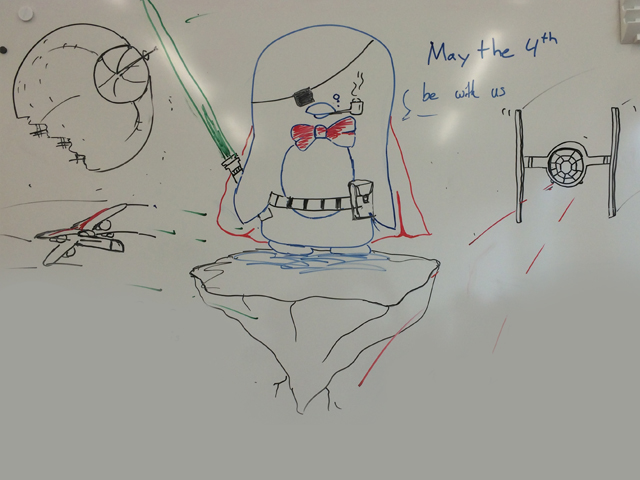 May the 4th
be with us